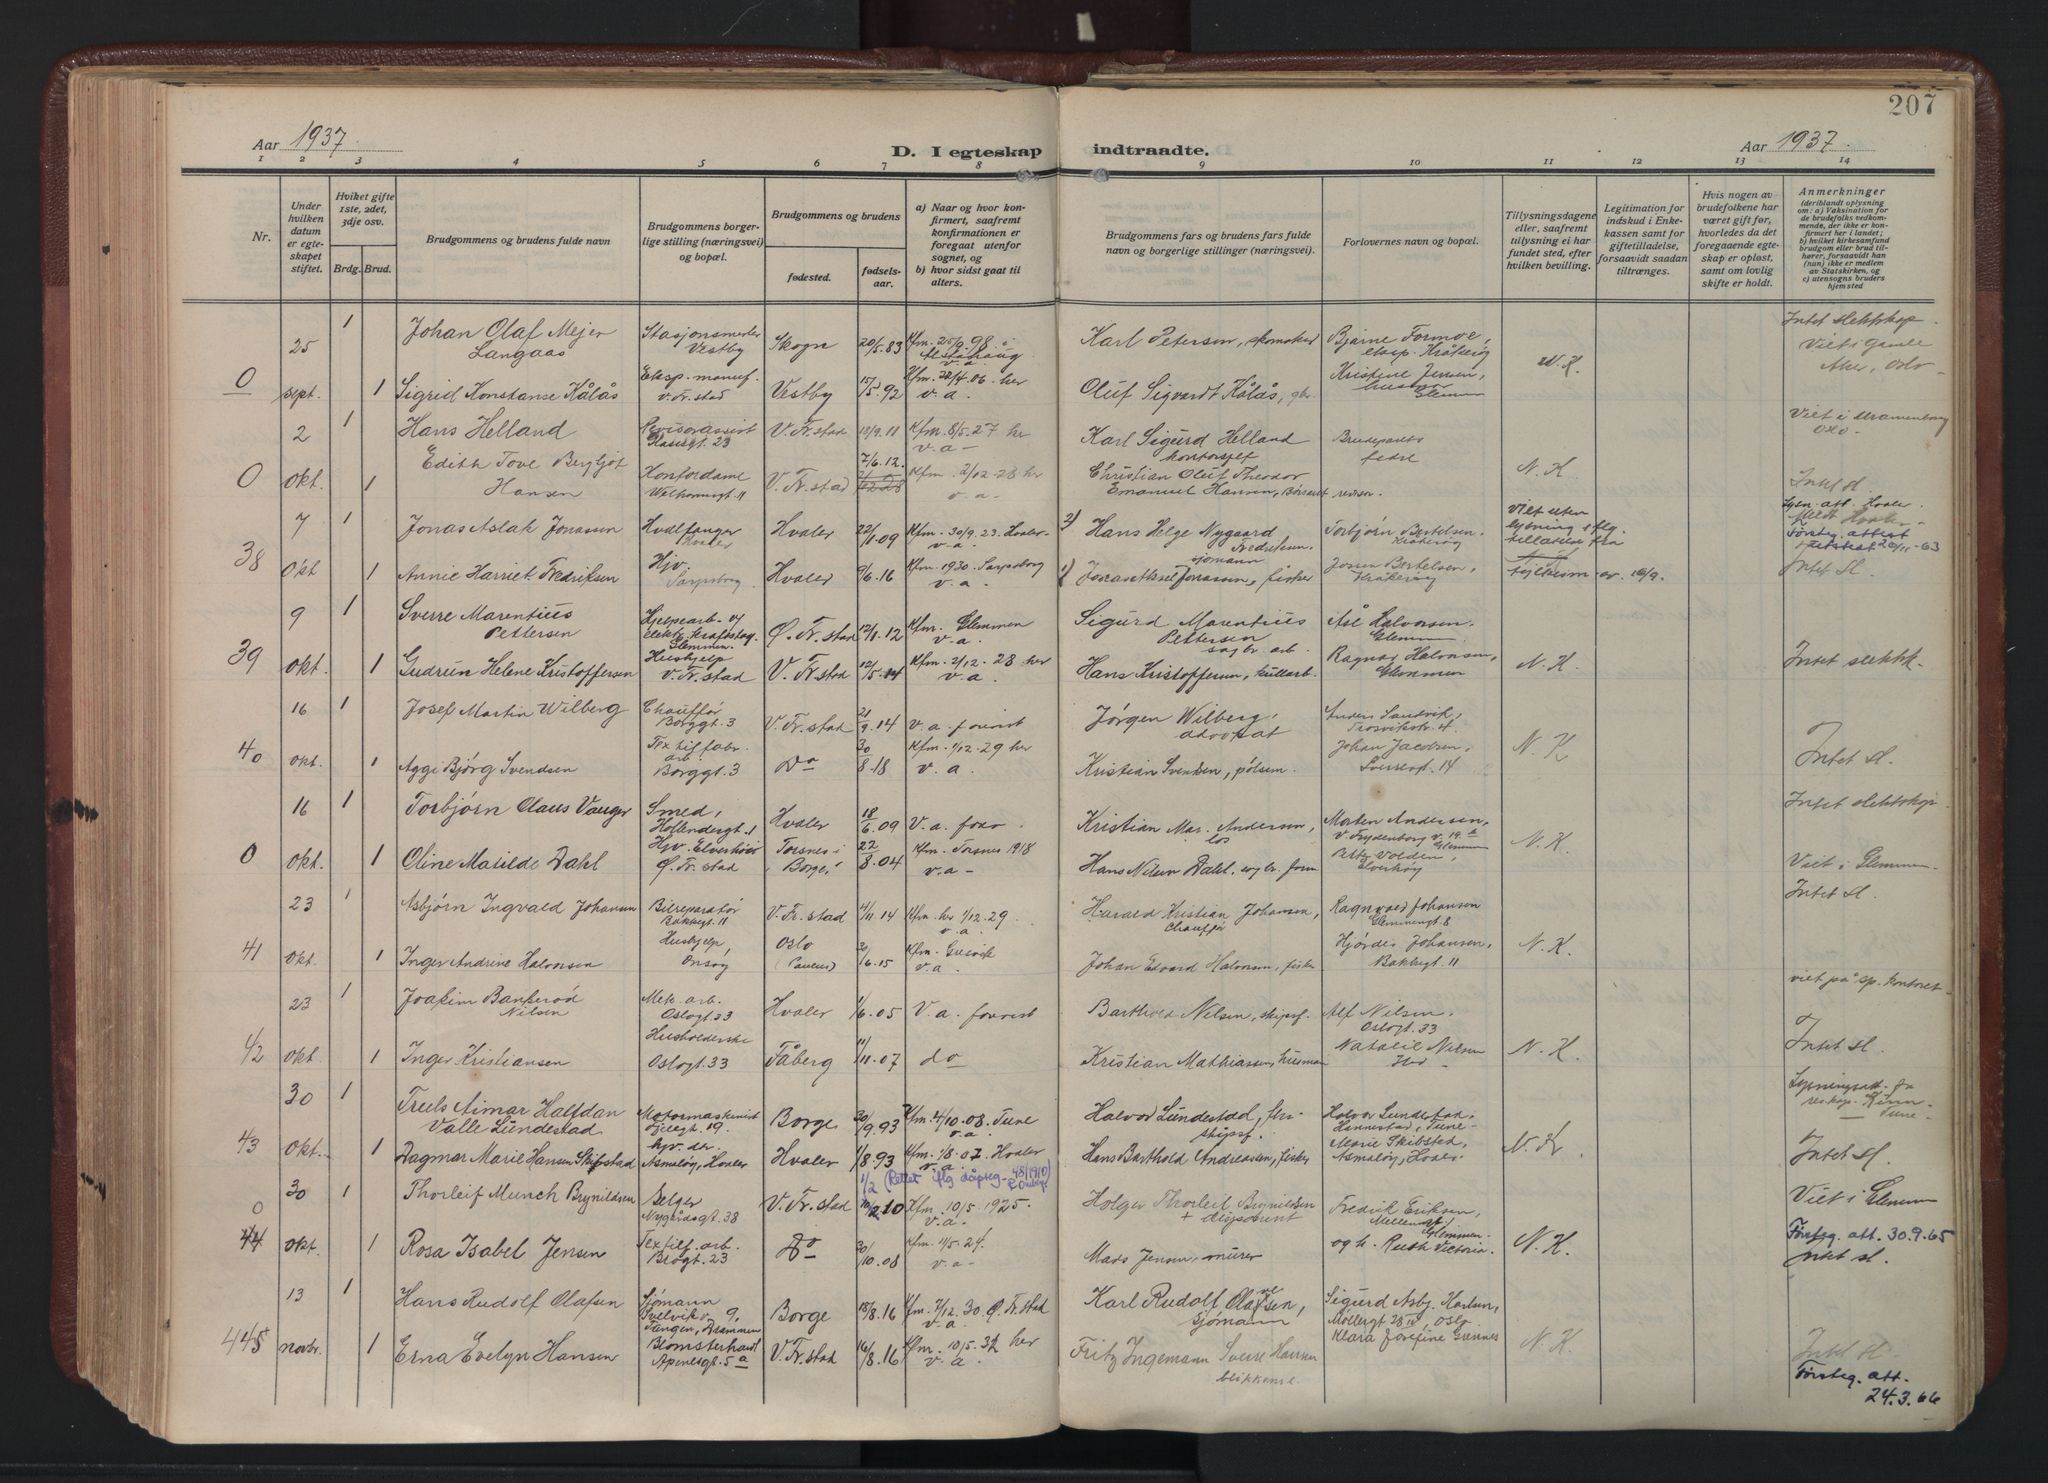 207
Aar 1937.
D. I egteskap indtraadte.
Aar 1937.
1 2 3 4 5 6 7 8 9 10 11 12 13 14
Nr.
Under hvilken datum er egteskapet stiftet.
Hviket gifte 1ste, 2det, 3dje osv.
Brdg. Brud.
Brudgommens og brudens fulde navn
Brudgommens borgerlige stilling (næringsvei) og bopæl.
Brudgommens og brudens
fødested.
fødselsaar.
a) Naar og hvor konfirmert, saafremt konfirmationen er foregaat utenfor sognet, og
b) hvor sidst gaat til alters.
Brudgommens fars og brudens fars fulde navn og borgerlige stillinger (næringsvei).
Forlovernes navn og bopæl.
Tillysningsdagene eller, saafremt tillysning ei har fundet sted, efter hvilken bevilling.
Legitimation for indskud i Enkekassen samt for giftetilladelse, forsaavidt saadan tiltrænges.
Hvis nogen av brudefolkene har været gift før, hvorledes da det foregaaende egteskap er opløst, samt om lovlig skifte er holdt.
Anmerkninger
(deriblandt oplysning om: a) Vaksination for de brudefolks vedkommende, der ikke er konfirmert her i landet; b) hvilket kirkesamfund brudgom eller brud tilhører, forsaavidt han (hun) ikke er medlem av Statskirken, og c) utensogns bruders hjemsted
25 1 Johan Olaf Mejer Langaas Stasjonsmester Vestby Skogn 20/5.83 Kfm. 25/9.98 i v.a. Karl Petersen, skomaker Bjarne Formoe, eksp. Kråkerøy Intet slektskap. Viet i Gamle Aker, Oslo
0 sept. 1 Sigrid Konstanse Kålås Eksp. manuf. V. Fr.stad Vestby 15/5.92 Kfm. 22/4.06 her v.a. Oluf Sigvardt Kålås, gbr. Kristine Jensen, Glemmen N.K.
2 1 Hans Helland Revisorassist. 23 V. Fr.stad 13/9.11 Kfm. 8/5.27 her v.a. Karl Sigurd Helland kontorsjef Brudeparets fedre Viet i Uranienborg Oslo
0 okt. 1 Edith Tove Bergljot Hansen Kontordame 11 V. Fr.stad 7/6.12 Kfm. 2/12.28 her v.a. Christian Oluf Theodor Emanuel Hansen, N.K. Intet sl.
7 1 Jonas Aslak Jonassen Hvalfanger Hvaler Hvaler 22/11.09 Kfm. 30/9.23. Hvaler v.a. 2) Hans Helge Nygaard Fredriksen. sjømann Torbjørn Bertelsen, Kråkerøy Viet uten lysning iflg. tillatelse fra
38 okt 1 Annie Harriet Fredriksen Hjv. Sarpsborg Hvaler 9/6.16 Kfm. 1930 Sarpsborg v.a. 1) Jonassen, fisker Josen Bertelsen, Kråkerøy 16/9. Førsteg. attest 20/11-63 Intet sl.
9 1 Sverre Marentius Pettersen Hjelpearb. v/ elektr. kraftstag. Glemmen Ø. Fr.stad 12/11.12 Kfm. Glemmen v.a. Sigurd Marentius Pettersen sagbr. arb. Halvorsen. Glemmen
39 okt. 1 Gudrun Helene Kristoffersen Hushjelp V. Fr.stad V. Fr.stad 12/5.14 Kfm. 2/12.28 her v.a. Hans Kristoffersen, kullarb. Ragnar Halvorsen, Glemmen N.K. Intet slektsk.
16 1 Josef Martin Wilberg Chauffør Borggt. 3 V. Fr.stad 21/9.14 v.a. forrest Jørgen Wilberg, advokat Anders Sandvik, Trosvikstr. 4
40 okt. 1 Aggi Bjørg Svendsen Textilfabr. arb. Borggt. 3 Do 30/8.18 Kfm. 1/12.29 her v.a. Kristian Svendsen, pølsem. Johan Jacobsen, 14 N.K. Intet sl.
16 1 Torbjørn Claus Vauger Smed, Hollendergt. 1 Hvaler 18/6.09 V.a. foro Kristian Mar. Andersen, los Morten Andersen, Glemmen Intet slektskap
0 okt. 1 Oline Matilde Dahl Hjv. Elverhøi Ø. Fr.stad Torsnes i Borge 22/8.04 Kfm. Torsnes 1918 v.a. Hans Nilsen Dahl, sagbr. form. N.K. Viet i Glemmen
23 1 Asbjørn Ingvald Johansen Bilreparatør Bakkegt. 11 V. Fr.stad 4/11.14 Kfm. her 1/12.29. v.a. Harald Kristian Johansen, Chauffør Ragnvald Johansen Glemmengt 8 Intet sl
41 okt. 1 Inger Andrine Halvorsen Hushjelp, Onsøy Oslo 30/6.15 Kfm. v.a. Johan Edvard Halvorsen, fisker Hjørdis Johansen, Bakkegt. 11 N.K. viet på sp. kontoret
23 1 Joakim Bankerød Nilsen Mek. arb. Oslogt. 33 Hvaler 1/6.05 V.a. forrest Barthold Nilsen, skipsf. Alf Nilsen. Oslogt. 33
42 okt. 1 Inger Kristiansen Husholderske Oslogt. 33 Fåberg 11/11.07 do Kristian Mathiassen, husmann Natalie Nilsen N.K. Intet sl.
30 1 Truls Aimar Halfdan Valle Lundestad Motormaskinist 19. Borge 30/9.93 Kfm. 4/10.08. Tune v.a. Halvor Lundestad, skipsf. Halvor Lundestad, Hannestad, Tune Tune
43 okt. 1 Dagmar Marie Hansen Skibstad Asmaløy, Hvaler Hvaler 1/8.93 Kfm. 1/8.07. Hvaler v.a. Hans Barthold Andreassen, fisker Marie Skibstad, Asmaløy, Hvaler N.K. Intet sl
30 1 Thorleif Munch Brynildsen Selger Nygårdsgt. 38 V. Fr.stad 1/2 (Rettet iflg dåpsreg. 48/1910) 10/2.10 Kfm. 10/5.1925. v.a. Holger Thorleif Brynildsen + disponent Fredrik Eriksen, Glemmen Viet i Glemmen
0 44 okt. 1 Rosa Isabel Jensen Textil. arb. Brogt. 23 Do 30/10.08 Kfm. 11/5.24. v.a. Mads Jensen, murer og h. Ruth Victoria. N.K. Førsteg. att. 30.9.65 Intet sl.
13 1 Hans Rudolf Olafsen Sjømann Svelvikv. 9, Tangen, Drammen Borge 18/8.16 Kfm. 7/12.30. Ø. Fr.stad v.a. Karl Rudolf Olafsen, Sjømann Sigurd Asbj. Karlsen, Møllergt 28 IV, Oslo
445 novbr. 1 Erna Evelyn Hansen Apenesgt. 5a V. Fr.stad 16/8.16 Kfm. 10/5.32 her v.a. Fritz Ingemann Sverre Hansen blikkensl. Klara Josefine N.K. Intet sl
Førsteg. att. 24.3.66